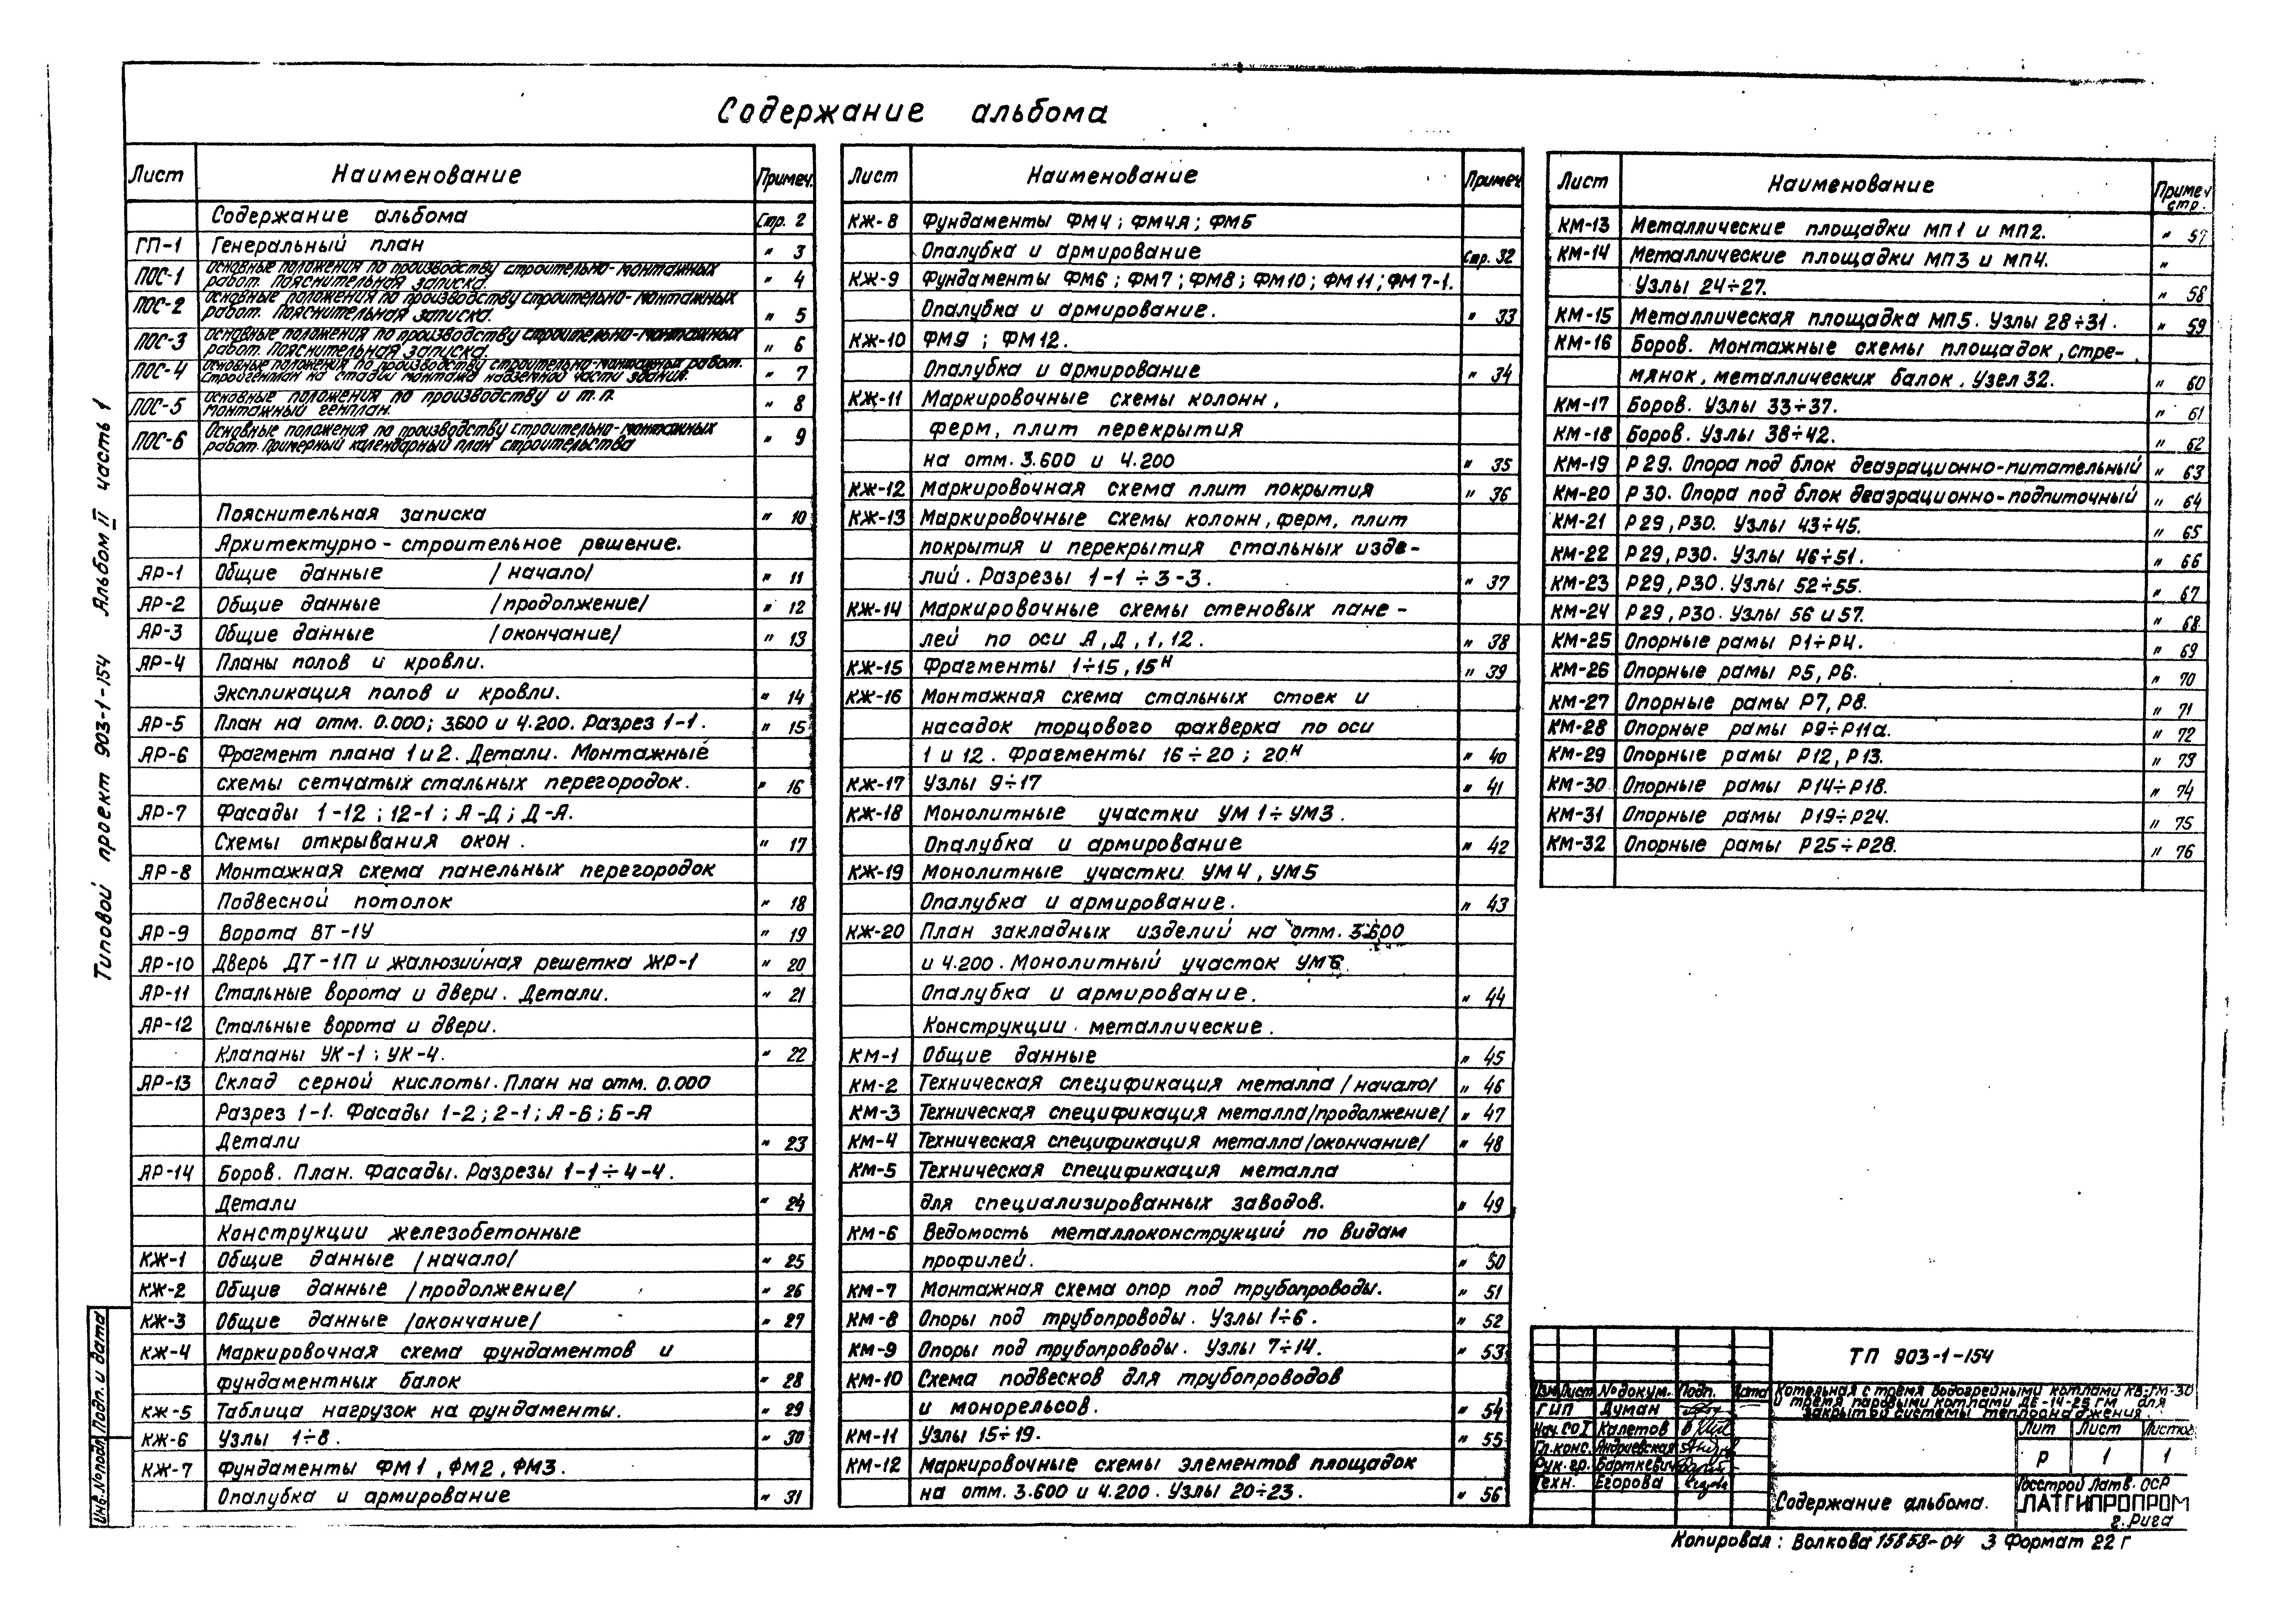 Содержание альбома
Лист Наименование Примеч.
Содержание альбома Стр. 2
ГП-1 Генеральный план " 3
ПОС-1 Основные положения по производству строительно-монтажных
работ. Пояснительная записка " 4
ПОС-2 Основные положения по производству строительно-монтажных
работ. Пояснительная записка. " 5
ПОС-3 Основные положения по производству строительно-монтажных
работ. Пояснительная записка. " 6
ПОС-4 Основные положения по производству строительно-монтажных работ.
Стройгенплан на стадии монтажа надземной части здания. " 7
ПОС-5 Основные положения по производству и т.п.
Монтажный генплан. " 8
ПОС-6 Основные положения по производству строительно-монтажных
работ. Примерный календарный план строительства " 9
Пояснительная записка " 10
Архитектурно-строительное решение.
АР-1 Общие данные /начало/ " 11
АР-2 Общие данные /продолжение/ " 12
АР-3 Общие данные /окончание/ " 13
АР-4 Планы полов и кровли.
Экспликация полов и кровли. " 14
АР-5 План на отм. 0.000; 3.600 и 4.200. Разрез 1-1. " 15
АР-6 Фрагмент плана 1 и 2. Детали. Монтажные
схемы сетчатых стальных перегородок. " 16
АР-7 Фасады 1-12; 12-1; А-Д; Д-А.
Схемы открывания окон. " 17
АР-8 Монтажная схема панельных перегородок
Подвесной потолок " 18
АР-9 Ворота ВТ-1У " 19
АР-10 Дверь ДТ-1П и жалюзийная решетка ЖР-1 " 20
АР-11 Стальные ворота и двери. Детали. " 21
АР-12 Стальные ворота и двери.
Клапаны УК-1; УК-4. " 22
АР-13 Склад серной кислоты. План на отм. 0.000
Разрез 1-1. Фасады 1-2; 2-1; А-Б; Б-А
Детали " 23
АР-14 Боров. План. Фасады. Разрезы 1-1÷4-4.
Детали " 24
Конструкции железобетонные
КЖ-1 Общие данные /начало/ " 25
КЖ-2 Общие данные /продолжение/ " 26
КЖ-3 Общие данные /окончание/ " 27
КЖ-4 Маркировочная схема фундаментов и
фундаментных балок " 28
КЖ-5 Таблица нагрузок на фундаменты. " 29
КЖ-6 Узлы 1÷8. " 30
КЖ-7 Фундаменты ФМ1, ФМ2, ФМ3.
Опалубка и армирование " 31
Лист Наименование Примеч
КЖ-8 Фундаменты ФМ4; ФМ4А; ФМ5
Опалубка и армирование Стр. 32
КЖ-9 Фундаменты ФМ6; ФМ7; ФМ8; ФМ10; ФМ11; ФМ7-1.
Опалубка и армирование. " 33
КЖ-10 ФМ9; ФМ12.
Опалубка и армирование " 34
КЖ-11 Маркировочные схемы колонн,
ферм, плит перекрытия
на отм. 3.600 и 4.200 " 35
КЖ-12 Маркировочная схема плит покрытия " 36
КЖ-13 Маркировочные схемы колонн, ферм, плит
покрытия и перекрытия стальных изде-
лий. Разрезы 1-1÷3-3. " 37
КЖ-14 Маркировочные схемы стеновых пане-
лей по оси А, Д, 1, 12. " 38
КЖ-15 Фрагменты 1÷15, 15н " 39
КЖ-16 Монтажная схема стальных стоек и
насадок торцового фахверка по оси
1 и 12. Фрагменты 16÷20; 20н " 40
КЖ-17 Узлы 9÷17 " 41
КЖ-18 Монолитные участки УМ1÷УМ3.
Опалубка и армирование " 42
КЖ-19 Монолитные участки УМ4, УМ5
Опалубка и армирование. " 43
КЖ-20 План закладных изделий на отм. 3.600
и 4.200. Монолитный участок УМ6
Опалубка и армирование. " 44
Конструкции металлические.
КМ-1 Общие данные " 45
КМ-2 Техническая спецификация металла /начало/ " 46
КМ-3 Техническая спецификация металла /продолжение/ " 47
КМ-4 Техническая спецификация металла /окончание/ " 48
КМ-5 Техническая спецификация металла
для специализированных заводов. " 49
КМ-6 Ведомость металлоконструкций по видам
профилей. " 50
КМ-7 Монтажная схема опор под трубопроводы. " 51
КМ-8 Опоры под трубопроводы. Узлы 1÷6. " 52
КМ-9 Опоры под трубопроводы. Узлы 7÷14. " 53
КМ-10 Схема подвесков для трубопроводов
и монорельсов. " 54
КМ-11 Узлы 15÷19. " 55
КМ-12 Маркировочные схемы элементов площадок
на отм. 3.600 и 4.200. Узлы 20÷23. " 56
Лист Наименование Примеч стр.
КМ-13 Металлические площадки МП1 и МП2. " 57
КМ-14 Металлические площадки МП3 и МП4. "
Узлы 24÷27. " 58
КМ-15 Металлическая площадка МП5. Узлы 28÷31. " 59
КМ-16 Боров. Монтажные схемы площадок, стре-
мянок, металлических балок. Узел 32. " 60
КМ-17 Боров. Узлы 33÷37. " 61
КМ-18 Боров. Узлы 38÷42. " 62
КМ-19 Р29. Опора под блок деаэрационно-питательный " 63
КМ-20 Р30. Опора под блок деаэрационно-подпиточный " 64
КМ-21 Р29, Р30. Узлы 43÷45. " 65
КМ-22 Р29, Р30. Узлы 46÷51. " 66
КМ-23 Р29, Р30. Узлы 52÷55. " 67
КМ-24 Р29, Р30. Узлы 56 и 57. " 68
КМ-25 Опорные рамы Р1÷Р4. " 69
КМ-26 Опорные рамы Р5, Р6. " 70
КМ-27 Опорные рамы Р7, Р8. " 71
КМ-28 Опорные рамы Р9÷Р11а. " 72
КМ-29 Опорные рамы Р12, Р13. " 73
КМ-30 Опорные рамы Р14÷Р18. " 74
КМ-31 Опорные рамы Р19÷Р24. " 75
КМ-32 Опорные рамы Р25÷Р28. " 76
Типовой проект 903-1-154 Альбом II часть 1
Инв.№подл. Подп. и дата
ТП 903-1-154
Изм Лист №докум. Подп. Дата
Котельная с тремя водогрейными котлами КВ-ГМ-30
и тремя паровыми котлами ДЕ-14-25 ГМ для
закрытой системы теплоснабжения
ГИП Думан
Нач. СО I Калетов
Гл.конс. Андриевская
Рук.гр. Барткевич
Техн. Егорова
Лит Лист Листов
Р 1 1
Содержание альбома.
Госстрой Латв. ССР
ЛАТГИПРОПРОМ
г. Рига
Копировал: Волкова 15858-04 3 Формат 22 г